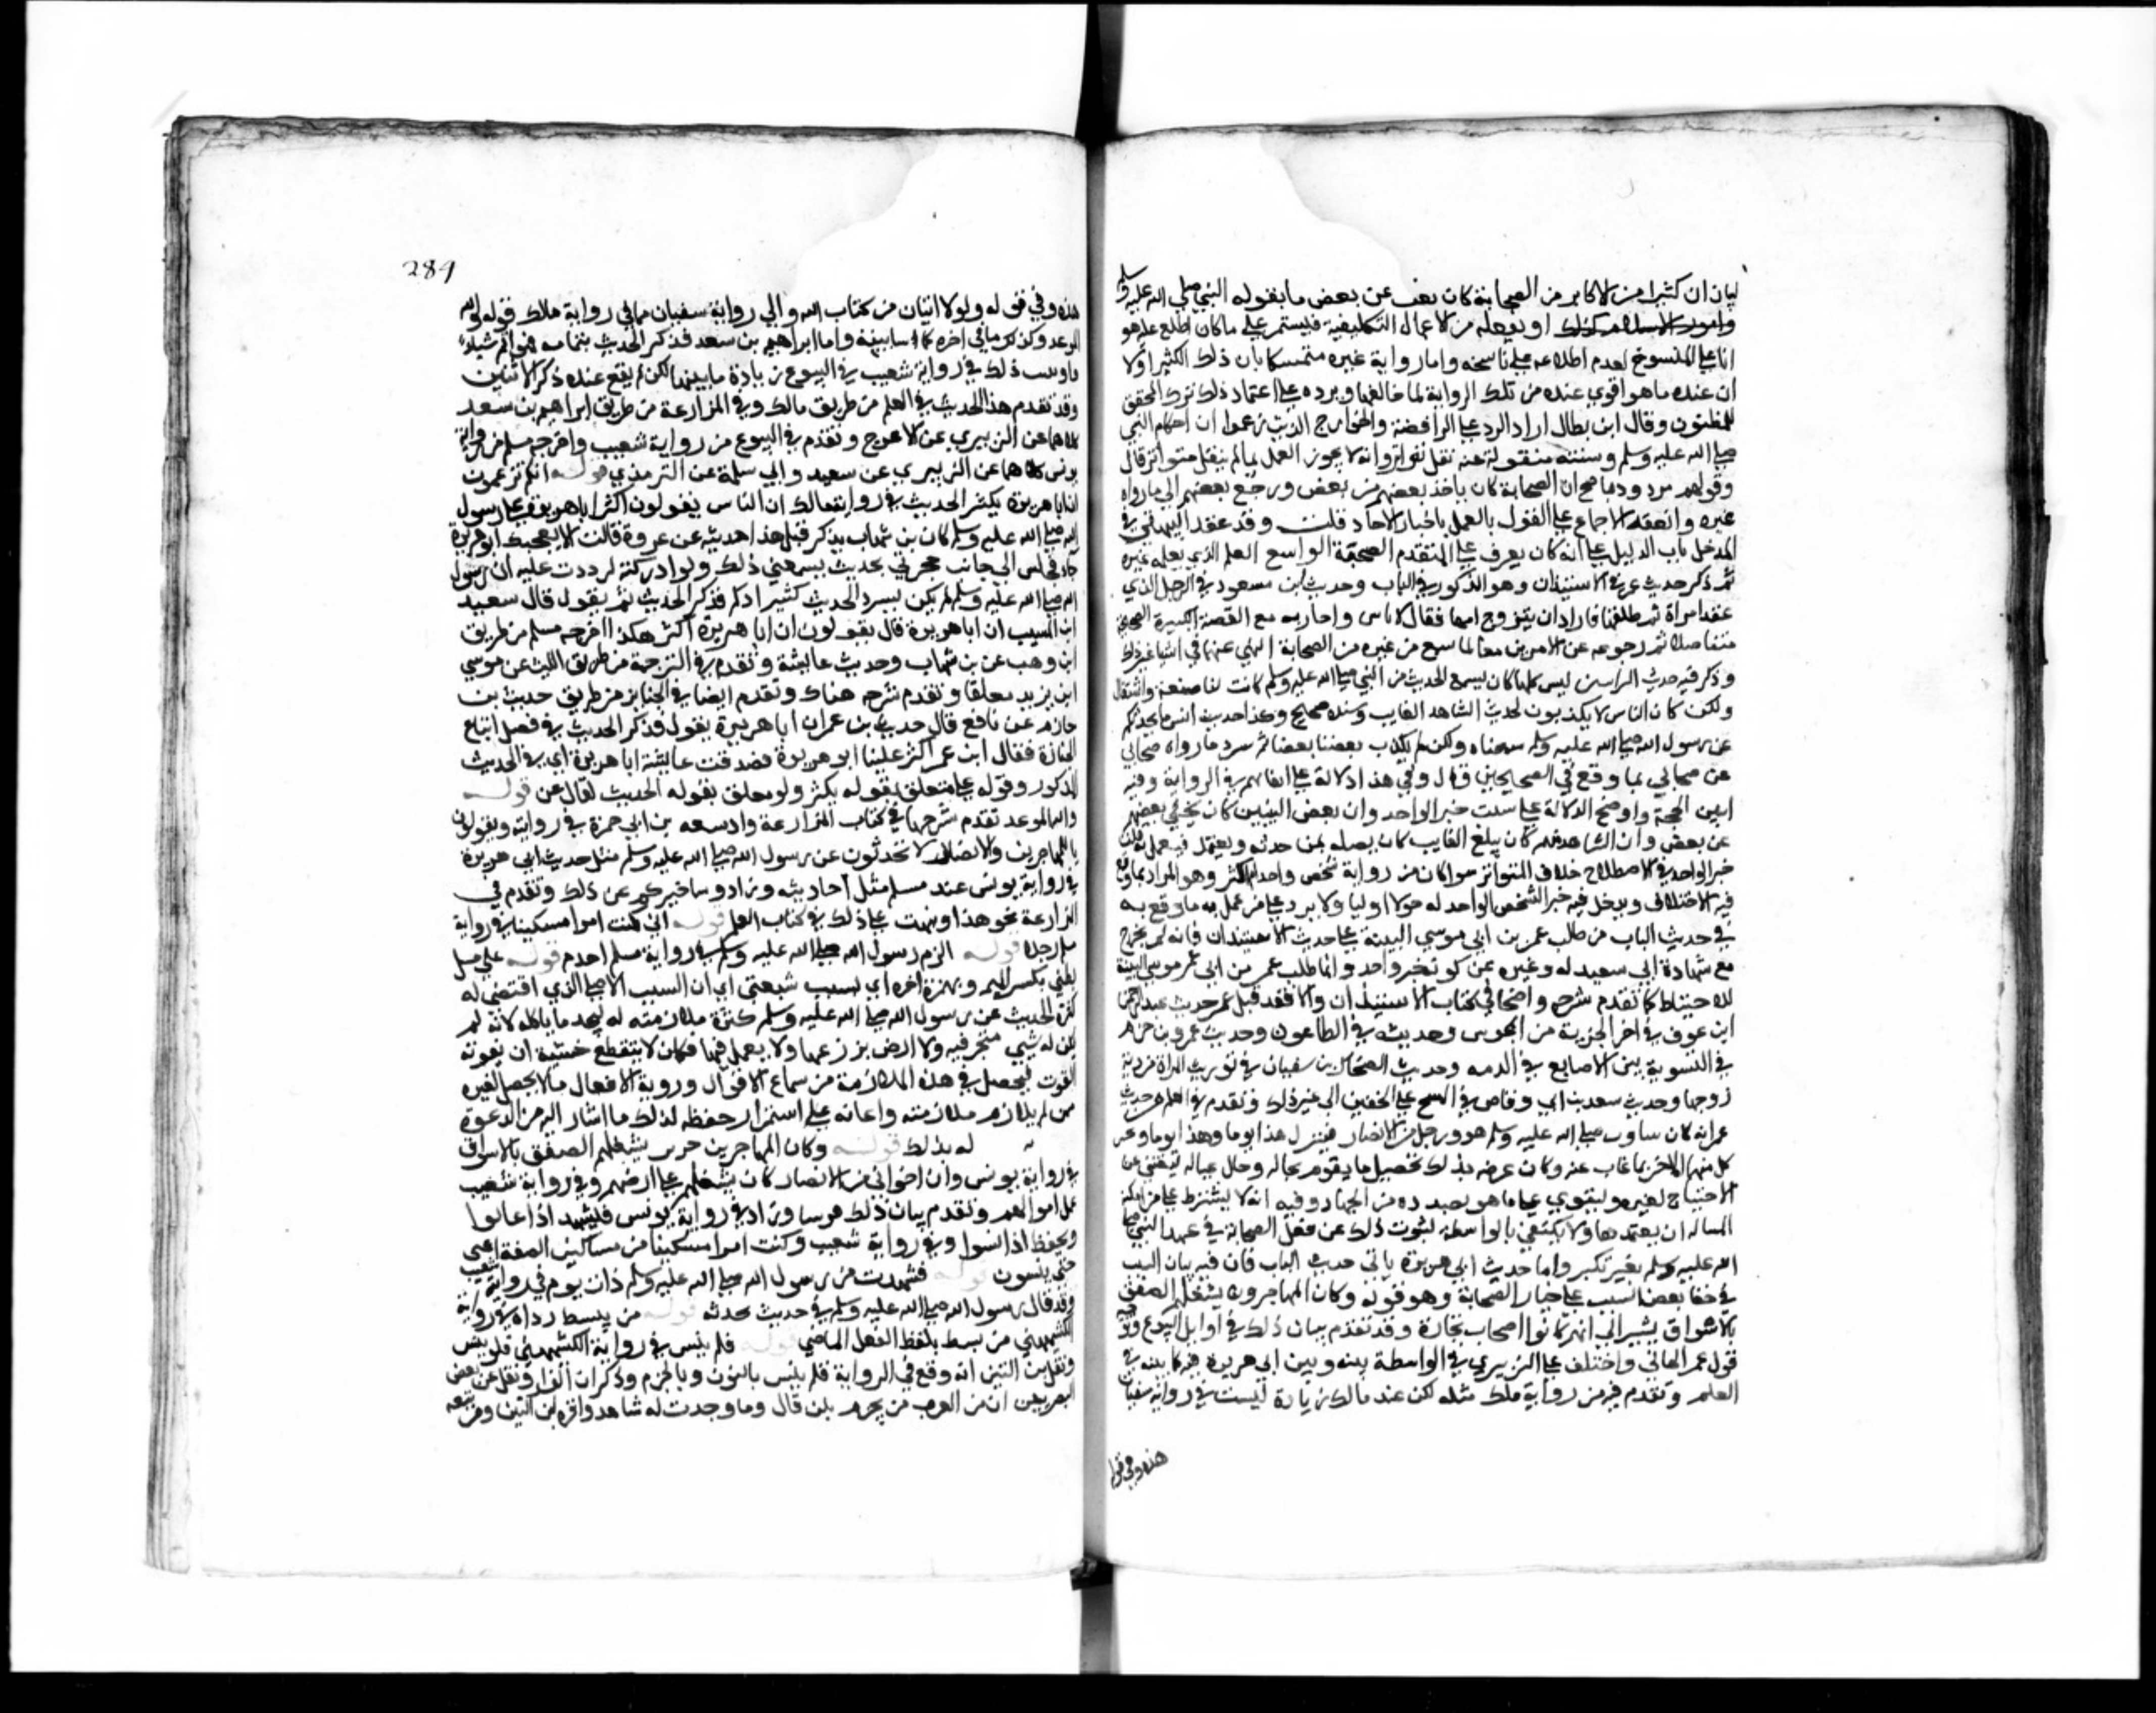 لبيان ان كثيرا من الاكابر من الصحابة كان يغيب عن بعض ما يقوله النبي صلي الله عليه وسلم
او يفعله من الاعمال التكليفية فيستمر علي ما كان اطلع عليه هو
اما علي المنسوخ لعدم اطلاعه علي ناسخه واما رواية غيره متمسكا بان ذلك الكثير لولا
ان عنده ما هو اقوي عنده من تلك الرواية لما خالفها ويرده علي اعتماد ذلك ترك المحقق
للمظنون وقال ابن بطال اراد الرد علي الرافضة والخوارج الذين زعموا ان احكام النبي
صلي الله عليه وسلم وسننه منقولة عنه نقل تواتر وانه لا يجوز العمل بما لم ينقل متواترا قال
وقولهم مردود بما صح ان الصحابة كان ياخذ بعضهم من بعض ورجع بعضهم الي ما رواه
غيره وانعقد الاجماع علي القول بالعمل باخبار الاحاد قلت وقد عقد البيهقي في
المدخل باب الدليل علي انه كان يعرف علي المتقدم الصحبة الواسع العلم الذي يعلمه غيره
ثم ذكر حديث عمر في الاستيذان وهو المذكور في الباب وحديث ابن مسعود في الرجل الذي
عقد امراة ثم طلقها فاراد ان يتزوج امها فقال لا باس
ثم رجوعه عن الامرين معا لما سمع من غيره من الصحابة النهي عنهما في اشيا غير ذلك
وذكر فيه حديث البراء ليس كلنا كان يسمع الحديث من النبي صلي الله عليه وسلم كانت لنا صنعة واشتغال
ولكن كان الناس لا يكذبون لحدث الشاهد الغايب وسنده صحيح وكذا حديث انس ما كل ما نحدثكم
عن رسول الله صلي الله عليه وسلم سمعناه ولكن لم يكذب بعضنا بعضا ثم سرد ما رواه صحابي
عن صحابي بما وقع في الصحيحين قال وفي هذا دلالة علي اتقانهم في الرواية وفيه
ابين الحجة واوضح الدلالة علي تثبت خبر الواحد وان بعض السنن كان يخفي بعضهم
عن بعض وان الشاهد منهم كان يبلغ الغايب
خبر الواحد في الاصطلاح خلاف المتواتر سوا كان من رواية شخص واحد ام اكثر وهو المراد بما وقع
فيه الاختلاف ويدخل فيه خبر الشخص الواحد دخولا اوليا ولا يرد علي من عمل به ما وقع به
في حديث الباب من طلب عمر من ابي موسي البينة علي حديث الاستيذان فانه لم يخرج
مع شهادة ابي سعيد له وغيره عن كونه خبر واحد وانما طلب عمر من ابي موسي البينة
للاحتياط كما تقدم شرحه واضحا في كتاب الاستيذان والا فقد قبل عمر حديث عبد الرحمن
ابن عوف في اخذ الجزية من المجوس وحديثه في الطاعون وحديث عمرو بن حزم
في التسوية بين الاصابع في الدية وحديث الضحاك بن سفيان في توريث المراة من دية
زوجها وحديث سعد بن ابي وقاص في المسح علي الخفين الي غير ذلك وتقدم في العلم من حديث
عمر انه كان يتناوب النبي صلي الله عليه وسلم هو ورجل من الانصار فينزل هذا يوما وهذا يوما ويخبر
كل منهما الاخر بما غاب عنه وكان غرضه بذلك تحصيل ما يقوم بحاله وحال عياله ليغتني عن
الاحتياج لغيره وليتقوي علي ما هو بصدده من الجهاد وفيه انه لا يشترط علي من امكنه
المسالة ان يعتمدها ولا يكتفي بالواسطة لثبوت ذلك عن فعل الصحابة في عهد النبي صلي
الله عليه وسلم بغير نكير واما حديث ابي هريرة ياتي حديث الباب فان فيه بيان السبب
في خفا بعض السنن علي خيار الصحابة وهو قوله وكان المهاجرون يشغلهم الصفق
بالاسواق يشير الي انهم كانوا اصحاب تجارة وقد تقدم بيان ذلك في اوايل البيوع وتوجيه
قول عمر الهاني واختلف علي الزهري في الواسطة بينه وبين ابي هريرة فيه كما بينته في
العلم وتقدم فيه من رواية ملك مثله لكن عند مالك زيادة ليست في رواية سفيان
هذه وهي قوله
289
هذه وهي قوله ولولا ايتان من كتاب الله والي رواية سفيان مما في رواية ملك قوله والله
الموعد وكذلك ما في اخره كما سابينه واما ابراهيم بن سعد فذكر الحديث بتمامه فهو اتم سياقا
وثبت ذلك في رواية شعيب في البيوع بزيادة سابينها لكن لم يقع عنده ذكر الايتين
وقد تقدم هذا الحديث في العلم من طريق مالك وفي المزارعة من طريق ابراهيم بن سعد
كلاهما عن الزهري عن الاعرج وتقدم في البيوع من رواية شعيب واخرجه مسلم من رواية
يونس كلاهما عن الزهري عن سعيد وابي سلمة عن الترمذي قوله انكم تزعمون
ان ابا هريرة يكثر الحديث في رواية مالك ان الناس يقولون اكثر ابو هريرة علي رسول
الله صلي الله عليه وسلم كان بن شهاب يذكر قبل هذا حديثه عن عروة قالت الا يعجبك ابو هريرة
جا فجلس الي جانب حجرتي يحدث يسمعني ذلك ولو ادركته لرددت عليه ان رسول
الله صلي الله عليه وسلم لم يكن يسرد الحديث كسردكم فذكر الحديث ثم يقول قال سعيد
ابن المسيب ان ابا هريرة قال يقولون ان ابا هريرة اكثر هكذا اخرجه مسلم من طريق
ابن وهب عن بن شهاب وحديث عايشة وتقدم في الترجمة من طريق الليث عن موسي
ابن يزيد معلقا وتقدم شرحه هناك وتقدم ايضا في الجنايز من طريق جرير بن
حازم عن نافع قال حدث بن عمر ان ابا هريرة يقول فذكر الحديث في فضل اتباع
الجنازة فقال ابن عمر اكثر علينا ابو هريرة فصدقت عايشة ابا هريرة اي في الحديث
المذكور وقوله علي متعلق بقوله يكثر ولو تعلق بقوله الحديث لقال عن قوله
والله الموعد تقدم شرحها في كتاب المزارعة وزاد شعيب بن ابي حمزة في روايته ويقولون
ما للمهاجرين والانصار لا يحدثون عن رسول الله صلي الله عليه وسلم مثل حديث ابي هريرة
في رواية يونس عند مسلم مثل احاديثه وزاد وساخبركم عن ذلك وتقدم في
المزارعة نحو هذا ونبهت علي ذلك في كتاب العلم قوله اني كنت امرا مسكينا في رواية
مسلم رجلا قوله الزم رسول الله صلي الله عليه وسلم في رواية مسلم اخدم قوله علي مل
بطني بكسر الميم وبهمزة اخره اي بسبب شبعي اي ان السبب الاصلي الذي اقتضي له
كثرة الحديث عن رسول الله صلي الله عليه وسلم كثرة ملازمته له ليجد ما ياكله لانه لم
يكن له شي يتجر فيه ولا ارض يزرعها ولا يعمل فيها فكان لا ينقطع خشية ان يفوته
القوت فيحصل في هذه الملازمة من سماع الاقوال وروية الافعال ما لا يحصل لغيره
ممن لم يلازمه ملازمته واعانه علي استمرار حفظه لذلك ما اشار اليه من الدعوة
له بذلك قوله وكان المهاجرين يشغلهم الصفق بالاسواق
في رواية يونس وان اخواني من الانصار كان يشغلهم علي ارضهم وفي رواية شعيب
عمل اموالهم وتقدم بيان ذلك قريبا وزاد في رواية يونس فيشهد اذا غابوا
ويحفظ اذا نسوا وفي رواية شعيب وكنت امرا مسكينا من مساكين الصفة اعي
حين ينسون قوله فشهدت من رسول الله صلي الله عليه وسلم ذات يوم في رواية شعيب
وقد قال رسول الله صلي الله عليه وسلم في حديث يحدثه قوله من يبسط رداه في رواية
الكشميهني من بسط بلفظ الفعل الماضي قوله فلم ينس في رواية الكشميهني فلن ينس
ونقل بن التين انه وقع في الرواية فلن ينس بالنون وبالجزم وذكر ان القزاز نقل عن بعض
البصريين ان من العرب من يجزم بلن قال وما وجدت له شاهد واقره بن التين ومن تبعه